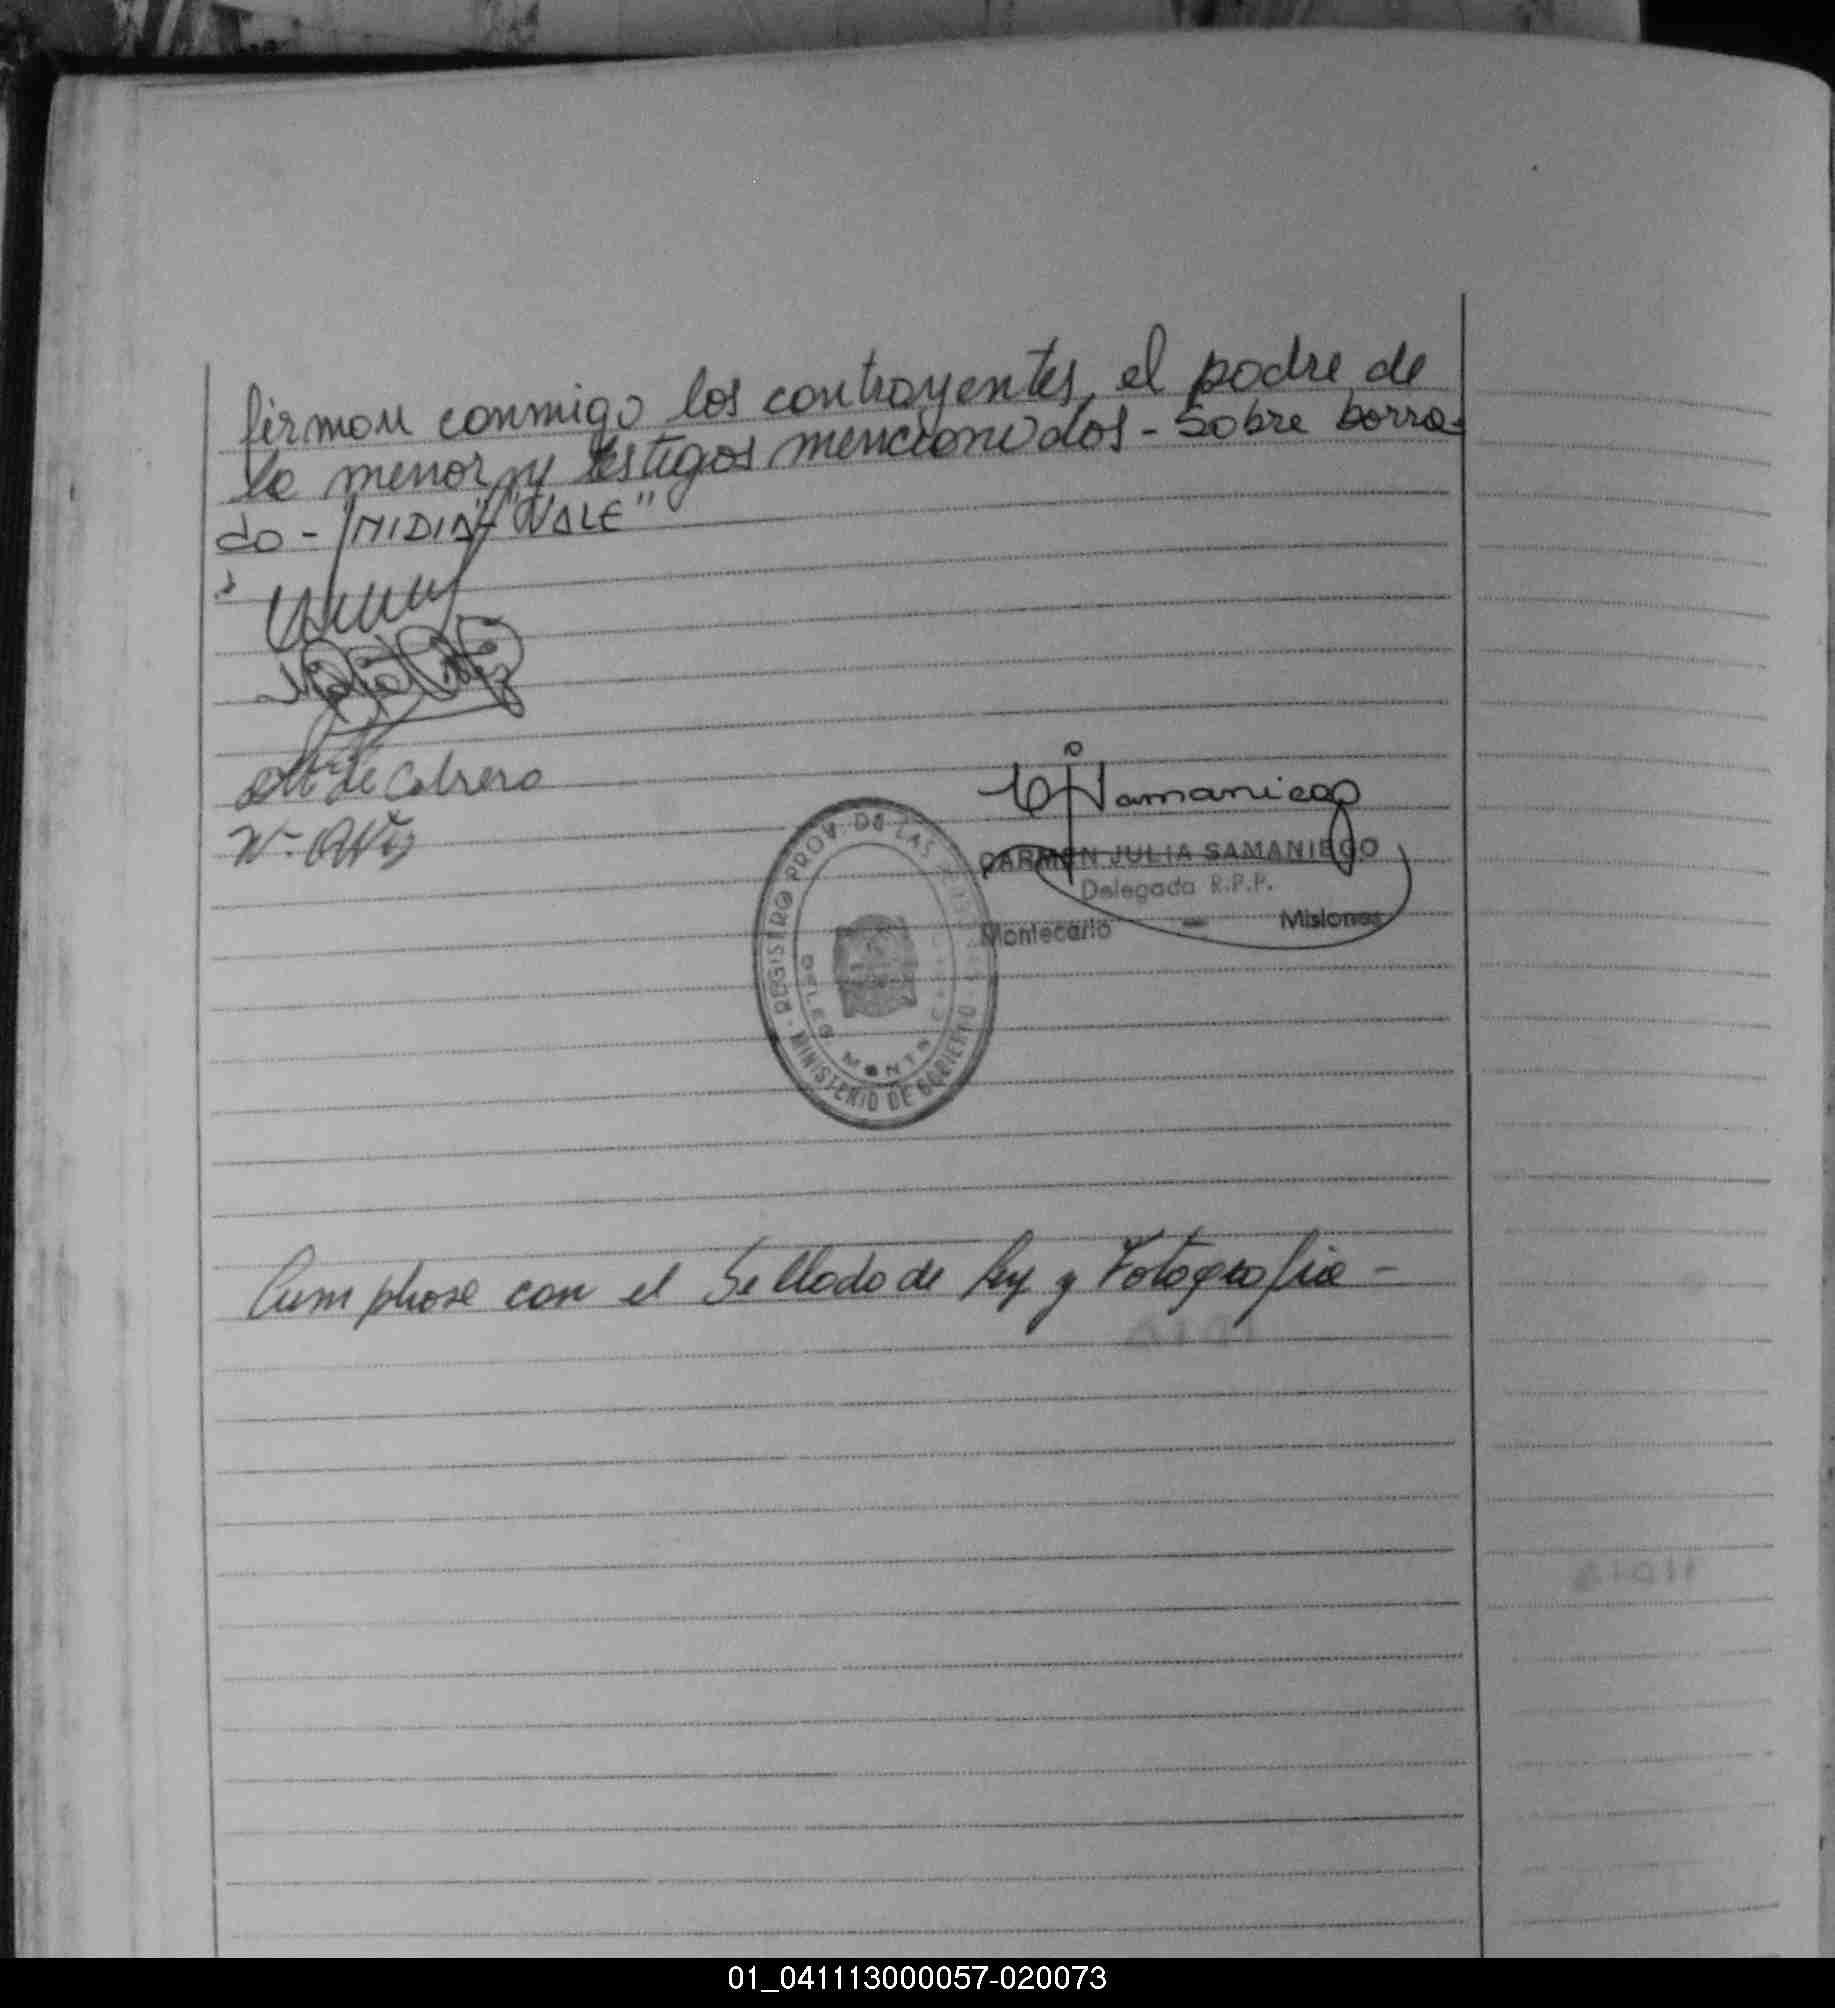 firman conmigo los contrayentes, el padre de
la menor y testigos mencionados - Sobre borra-
do - "NIDIA" - "VALE"
de Cabrera
CJSamaniego
CARMEN JULIA SAMANIEGO
Delegada R.P.P.
Montecarlo - Misiones
REGISTRO PROV. DE LAS
MINISTERIO DE GOBIERNO
Cumplase con el Sellado de Ley y Fotografia -
01_041113000057-020073